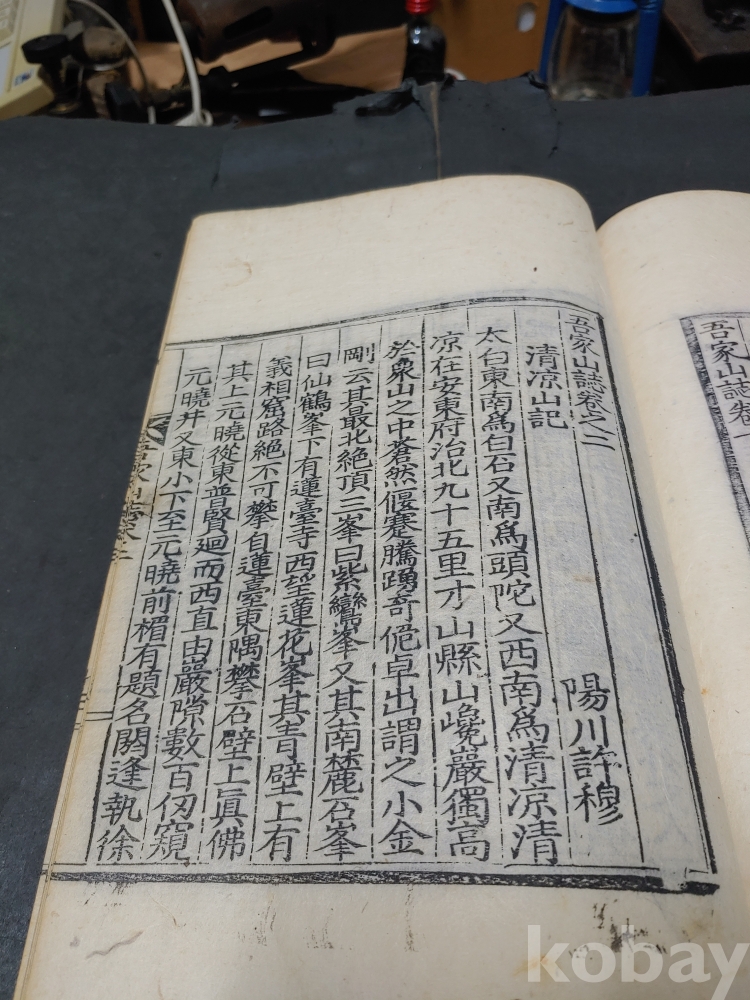 吾家山誌卷之二
清凉山記
陽川許穆
太白東南爲白石又南爲頭陀又西南爲清凉清
凉在安東府治北九十五里才山縣山巉巖獨高
於衆山之中蒼然偃蹇騰踴奇傀卓出謂之小金
剛云其最北絶頂三峯曰紫鸞峯又其南麓石峯
曰仙鶴峯下有蓮臺寺西望蓮花峯其青壁上有
義相窟路絶不可攀自蓮臺東隅攀石壁上眞佛
其上元曉從東普賢廻而西直由巖隙數百仞窺
元曉井又東小下至元曉前楣有題名閼逢執徐
吾家山誌卷
吾家山誌卷
kobay